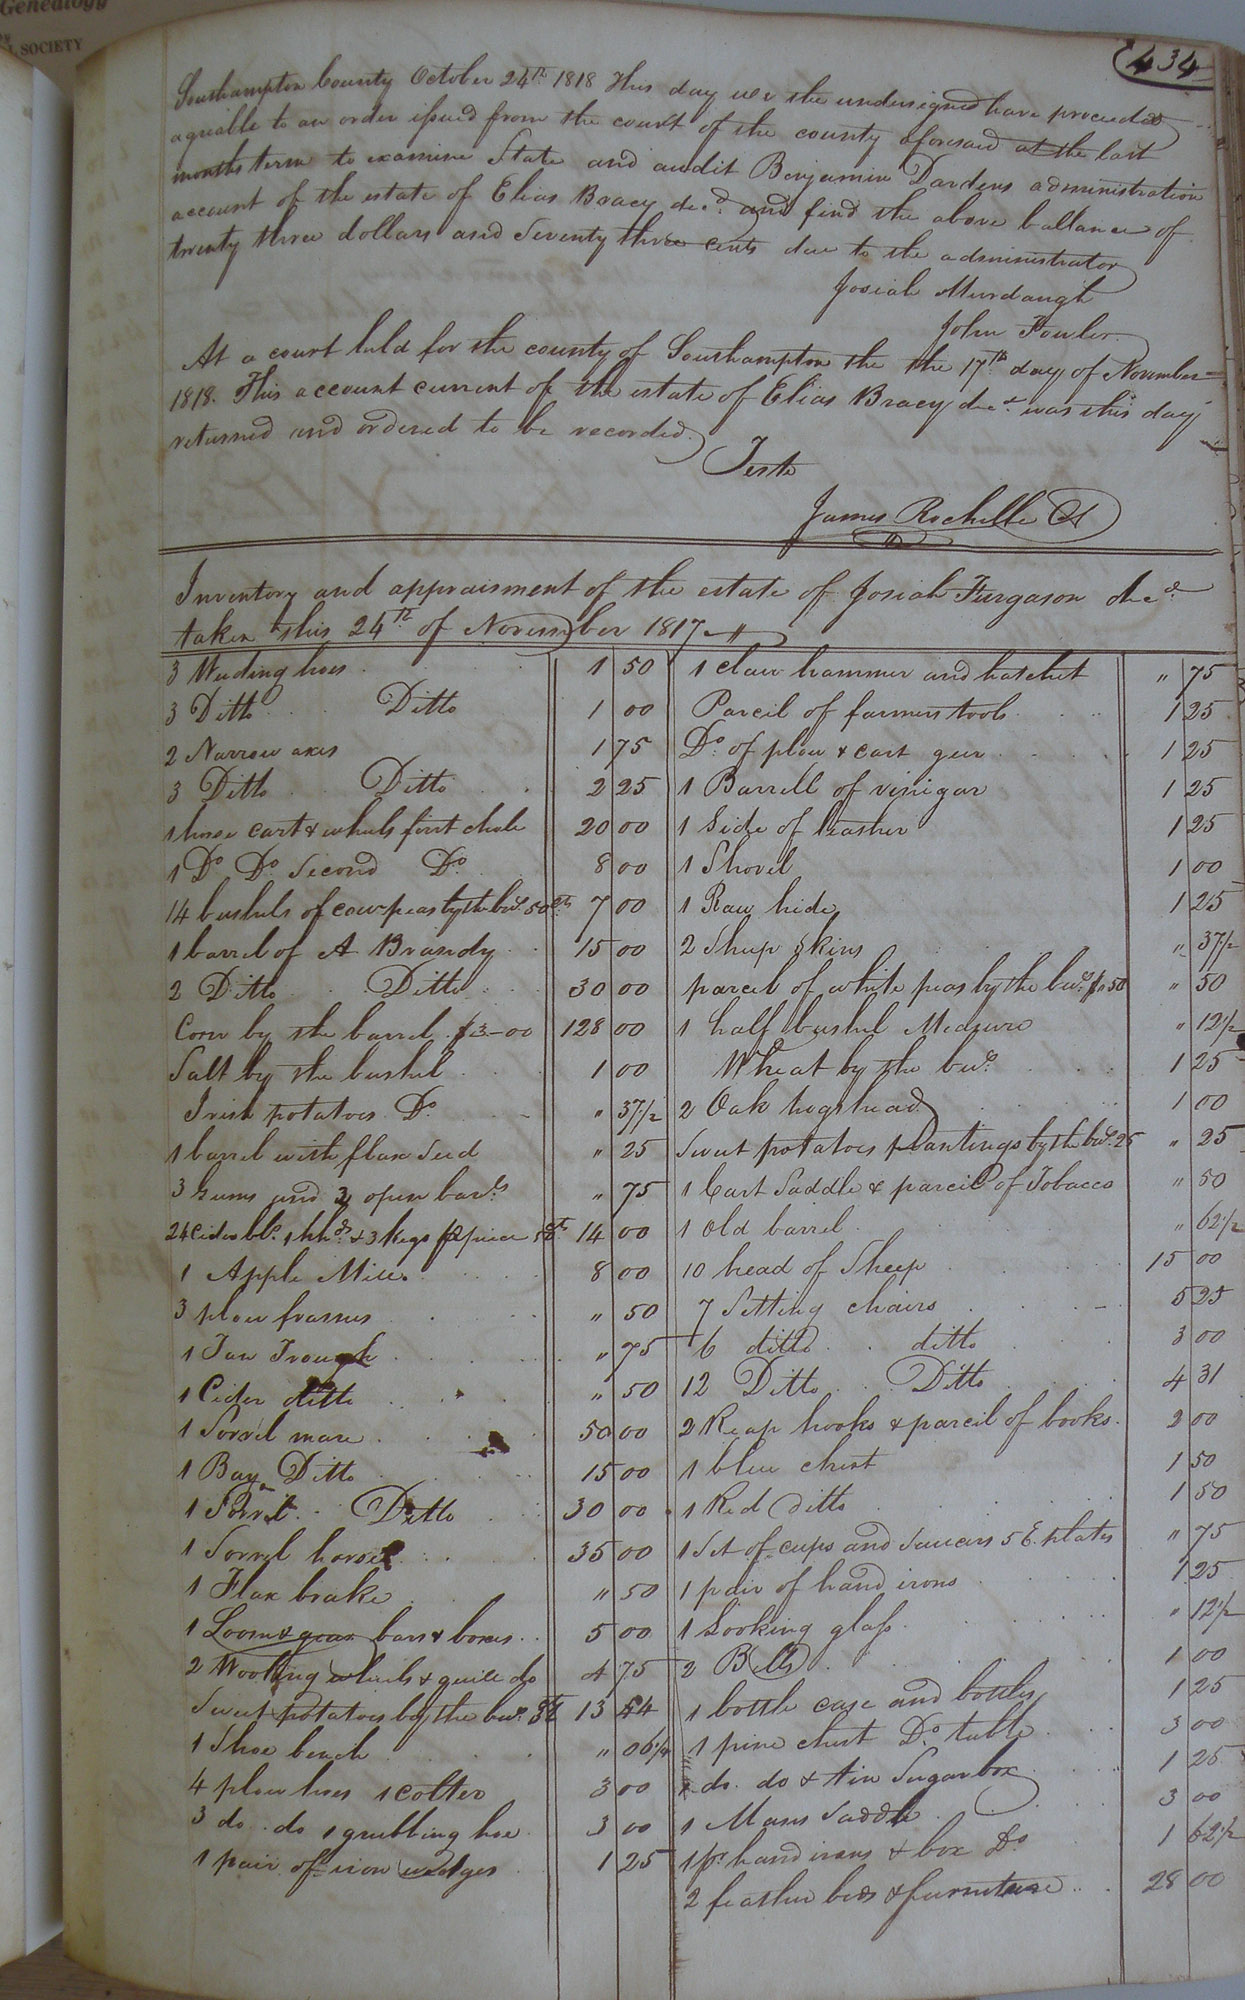 Genealogy
L SOCIETY
434
Southampton County October 24th 1818 This day we the undersigned have proceeded
agreable to an order issued from the court of the county aforesaid at the last
months term to examine State and audit Benjamin Dardens administration
account of the estate of Elias Bracy decd. and find the above ballance of
twenty three dollars and Seventy three cents due to the administrator
Josiah Murdaugh
John Fowler
At a court held for the county of Southampton the the 17th day of November
1818. This account current of the estate of Elias Bracy decd. was this day
returned and ordered to be recorded.
Teste
James Rochelle Ct
Inventory and appraisment of the estate of Josiah Furgason decd.
taken this 24th of November 1817
3 Weeding hoes 1 50
3 Ditto Ditto 1 00
2 Narrow axes 1 75
3 Ditto Ditto 2 25
1 horse cart & wheels first chole 20 00
1 Do Do Second Do 8 00
14 bushels of cow peas by the bus. 50cts 7 00
1 barrel of A Brandy 15 00
2 Ditto Ditto 30 00
Corn by the barrel $3-00 128 00
Salt by the bushel 1 00
Irish potatoes Do. " 37 1/2
1 barrel with flax Seed " 25
3 Gums and 2 open bar.ls " 75
24 cider bls. 1 hhd. & 3 kegs 14 00
1 Apple Mill 8 00
3 plow frames " 50
1 Tan Trough " 75
1 Cider ditto " 50
1 Sorrel mare 50 00
1 Bay Ditto 15 00
1 Ditto 30 00
1 Sorrel horse 35 00
1 Flax brake " 50
1 Loom & gear bars & boxes 5 00
2 Wooling wheels & quill do 4 75
Sweet potatoes by the bus. 13 44
1 Shoe bench " 06 1/4
4 plow hoes 1 colter 3 00
3 do. do 1 grubbing hoe 3 00
1 pair of iron wedges 1 25
1 claw hammer and hatchet " 75
Parcil of farmers tools 1 25
Do. of plow & cart geer 1 25
1 Barrell of vinigar 1 25
1 Side of leather 1 25
1 Shovel 1 00
1 Raw hide 1 25
2 Sheep skins " 37 1/2
parcel of white peas by the bus. 50 " 50
1 half bushel Measure " 12 1/2
Wheat by the bus. 1 25
2 Oak hogshead 1 00
Sweet potatoes plantings by the bus. 25 " 25
1 Cart Saddle & parcil of Tobacco " 50
1 old barrel " 62 1/2
10 head of Sheep 15 00
7 Setting chairs 5 25
6 ditto ditto 3 00
12 Ditto Ditto 4 31
2 Reap hooks & parcil of books 2 00
1 blue chest 1 50
1 Red ditto 1 50
1 Set of cups and Saucers 5 E. plates " 75
1 pair of hand irons 1 25
1 Looking glass " 12 1/2
2 Bells 1 00
1 bottle case and bottles 1 25
1 pine chest Do. table 3 00
1 do. do & tin Sugar box 1 25
1 Mans Saddle 3 00
1 pr. hand irons & box Do 1 62 1/2
2 feather beds & furniture 28 00